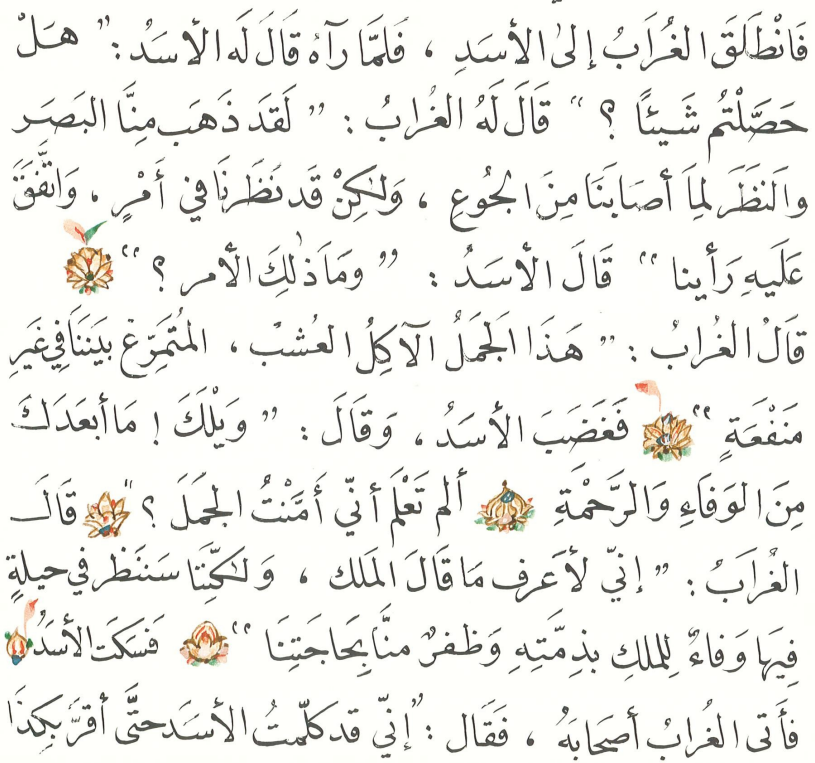 فَانْطَلَقَ الغُرَابُ إلىٰ الأسَدِ ، فَلمَّا رآهُ قَالَ لَه الأسَدُ : ” هَلْ
حَصَّلْتُم شَيئاً ؟ “ قَالَ لَهُ الغُرابُ : ” لَقَد ذَهَب مِنَّا البَصَر
والنَظَر لِمَا أصَابَنَا مِنَ الجُوعِ ، وَلٰكِنْ قَد نَظَرنَا في أَمْرٍ ، وَاتَّفَقَ
عَلَيهِ رَأينا “ قَالَ الأسَدُ : ” وَمَا ذٰلِكَ الأمر ؟ “
قَالَ الغُرابُ : ” هَذَا الجَمَلُ الآكِلُ العُشبَ ، المُتَمَرّغ بَينَنَا في غَيرِ
مَنْفَعَةٍ “ فَغَضَبَ الأسَدُ ، وَقَالَ : ” وَيلَكَ ! مَا أبعَدَكَ
مِنَ الوَفَاءِ وَالرَّحْمَةِ ألم تَعْلَم أنّي أَمَّنْتُ الجَمَلَ ؟ “ قَالَ
الغُرَابُ : ” إنيّ لأعَرف مَا قَالَ المَلك ، وَلٰكنَّنَا سَنَنظر في حيلةٍ
فِيهَا وَفاءٌ لِلملكِ بذِمَّتِهِ وَظفرٌ منَّا بِحَاجَتِنَا “ فَسَكَت الأسَدُ
فأتى الغُرابُ أصحَابَهُ ، فَقَال : ” إنيّ قد كلّمتُ الأسَد حتَّى أقرَّ بكِذَا